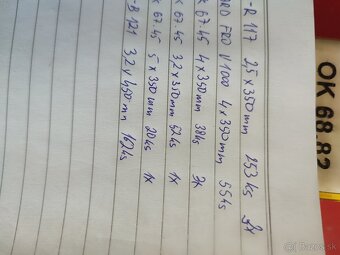 -R 117 2,5 x 350 mm 253 ks 2x
RD FRO V1000 4 x 350 mm 55 ks
x 67.45 4 x 350 mm 38 ks
x 67.45 3,2 x 350 mm 52 ks 1x
x 67.45 5 x 350 mm 20 ks 1x
B 121 3,2 x 450 mm 162 ks
OK 68.82
bazos.sk